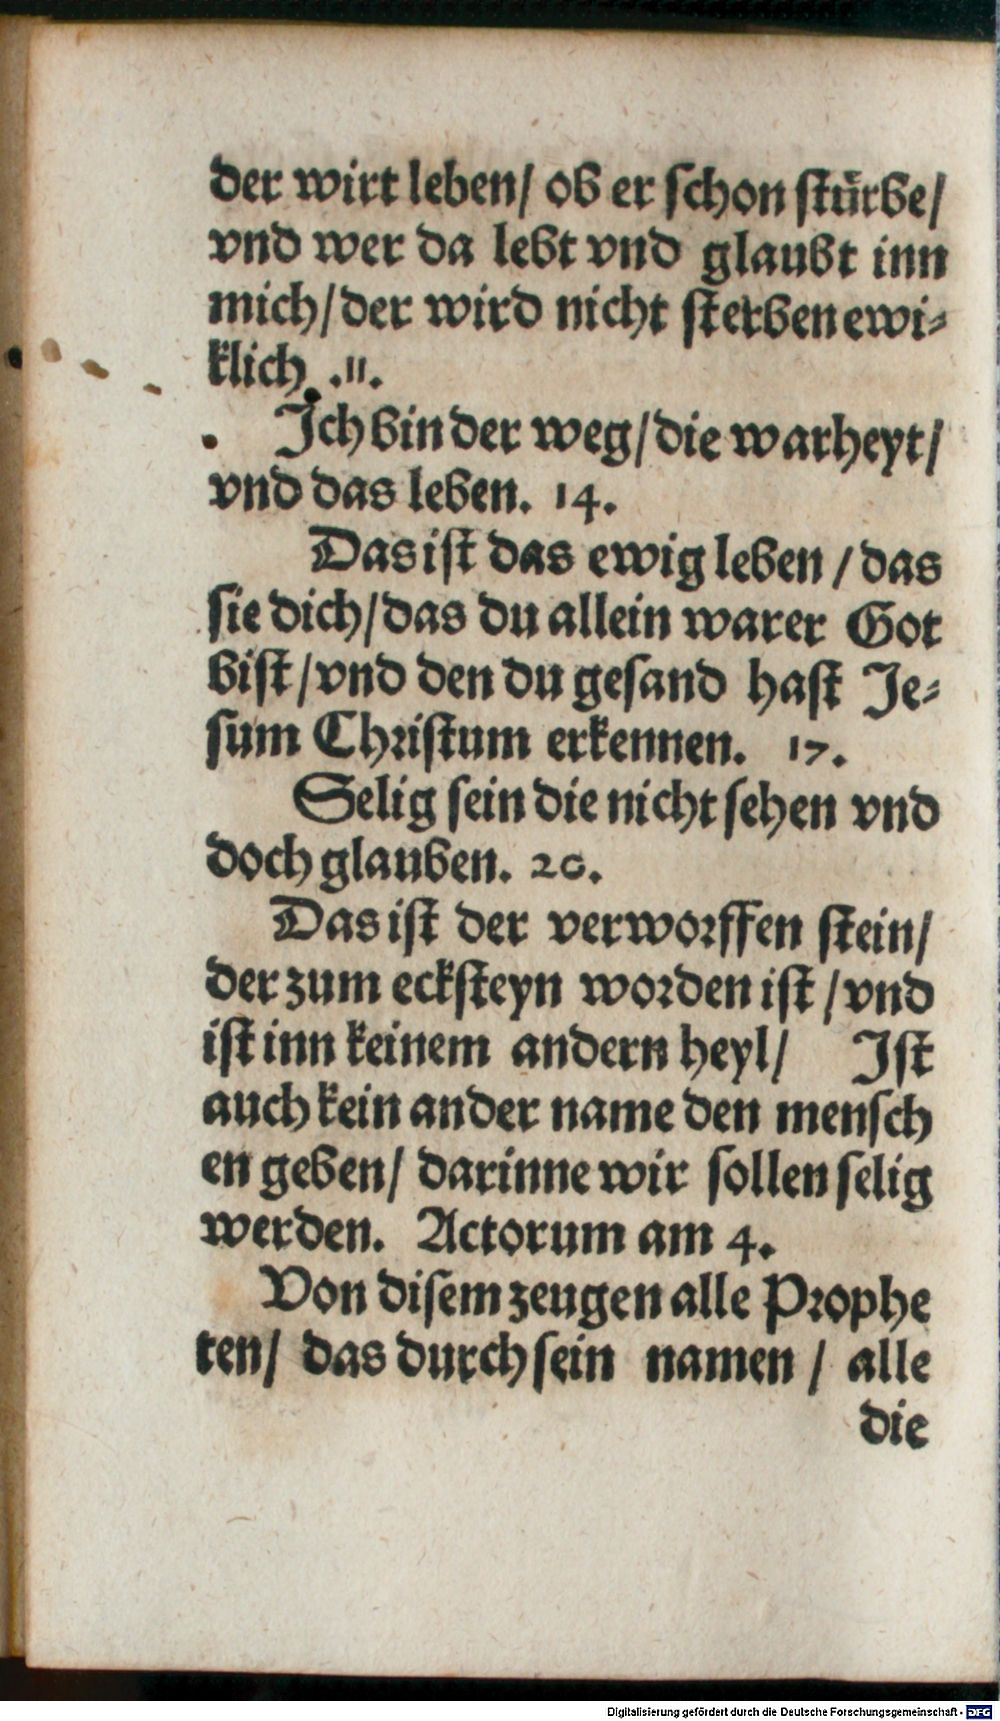 der wirt leben/ ob er schon stürbe/
vnd wer da lebt vnd glaubt inn
mich/der wird nicht sterben ewi-
klich .11.
Ich bin der weg/die warheyt/
vnd das leben. 14.
Das ist das ewig leben / das
sie dich/das du allein warer Got
bist/vnd den du gesand hast Je-
sum Christum erkennen. 17.
Selig sein die nicht sehen vnd
doch glauben. 20.
Das ist der verworffen stein/
der zum ecksteyn worden ist /vnd
ist inn keinem andern heyl/ Ist
auch kein ander name den mensch
en geben/ darinne wir sollen selig
werden. Actorum am 4.
Von disem zeugen alle Prophe
ten/ das durch sein namen / alle
die
Digitalisierung gefördert durch die Deutsche Forschungsgemeinschaft - DFG